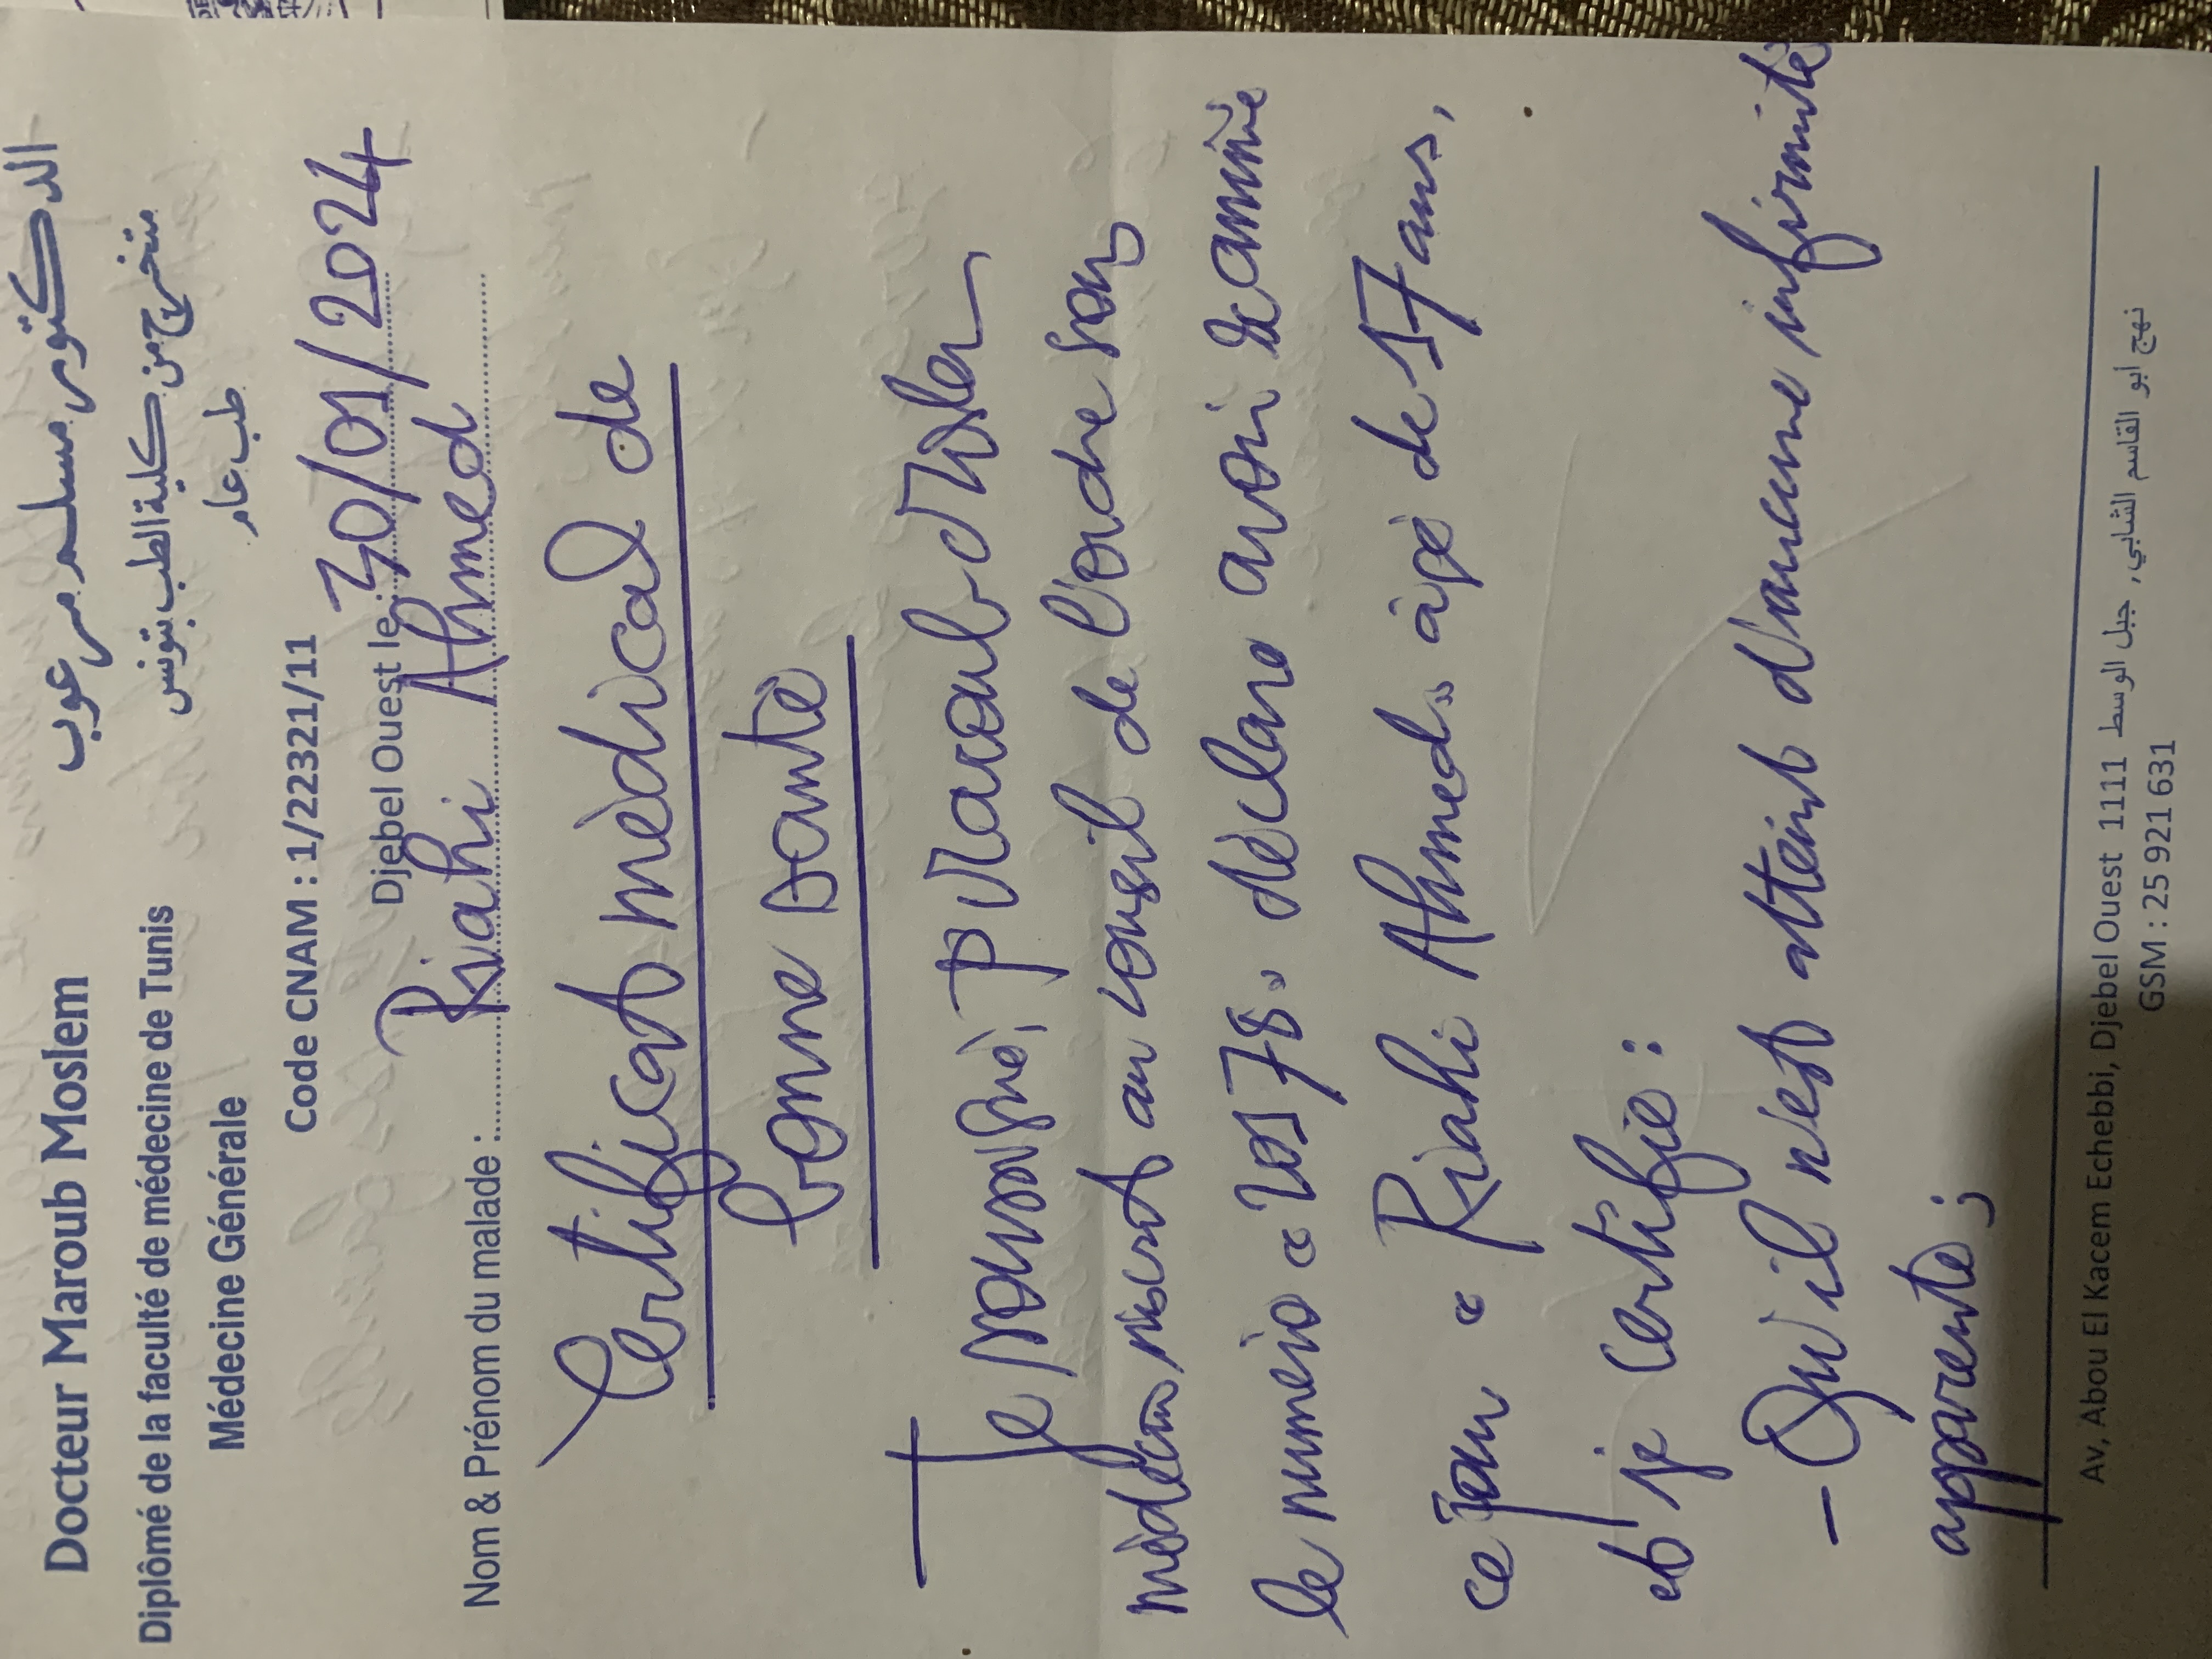 Docteur Maroub Moslem
الدكتور مسلم مرعوب
Diplômé de la faculté de médecine de Tunis
متخرج من كلية الطب بتونس
Médecine Générale
طب عام
Code CNAM : 1/22321/11
Djebel Ouest le : 30/01/2024
Nom & Prénom du malade : Riahi Ahmed
Certificat médical de
bonne santé
Je soussigné, Maroub Moslem
médecin, inscrit au conseil de l'ordre sous
le numéro « 20178 » déclare avoir examiné
ce jour « Riahi Ahmed » âgé de 17 ans,
et je certifie :
- Qu'il n'est atteint d'aucune infirmité
apparente ;
Av, Abou El Kacem Echebbi, Djebel Ouest 1111 نهج أبو القاسم الشابي, جبل الوسط
GSM : 25 921 631